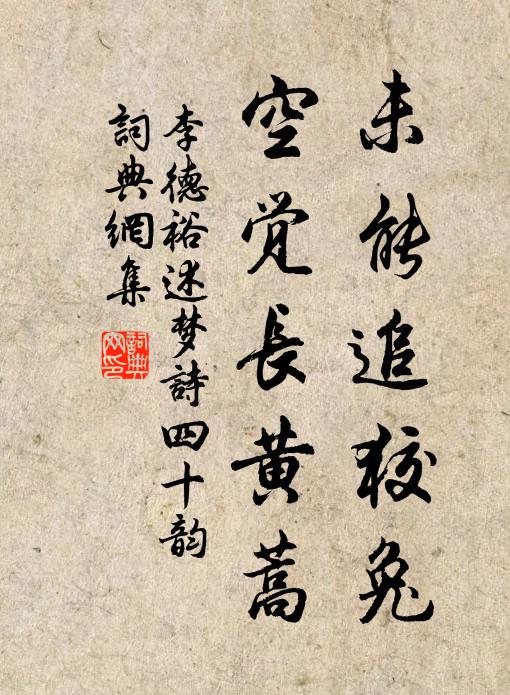 未能追狡兔
空觉長黄蒿
李德裕述梦詩四十韵
詞典網集
詞典网印